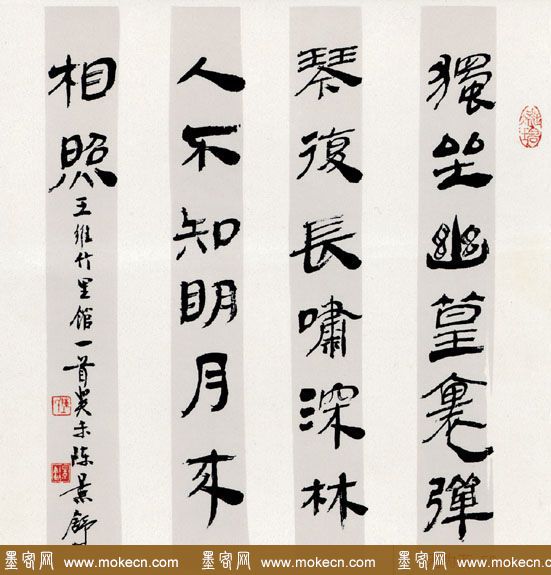 獨坐幽篁裏彈
琴復長嘯深林
人不知明月來
相照
王維竹里館一首癸未陈景舒
墨客网 www.mokecn.com 墨客网 www.mokecn.com 墨客网 www.mokecn.com